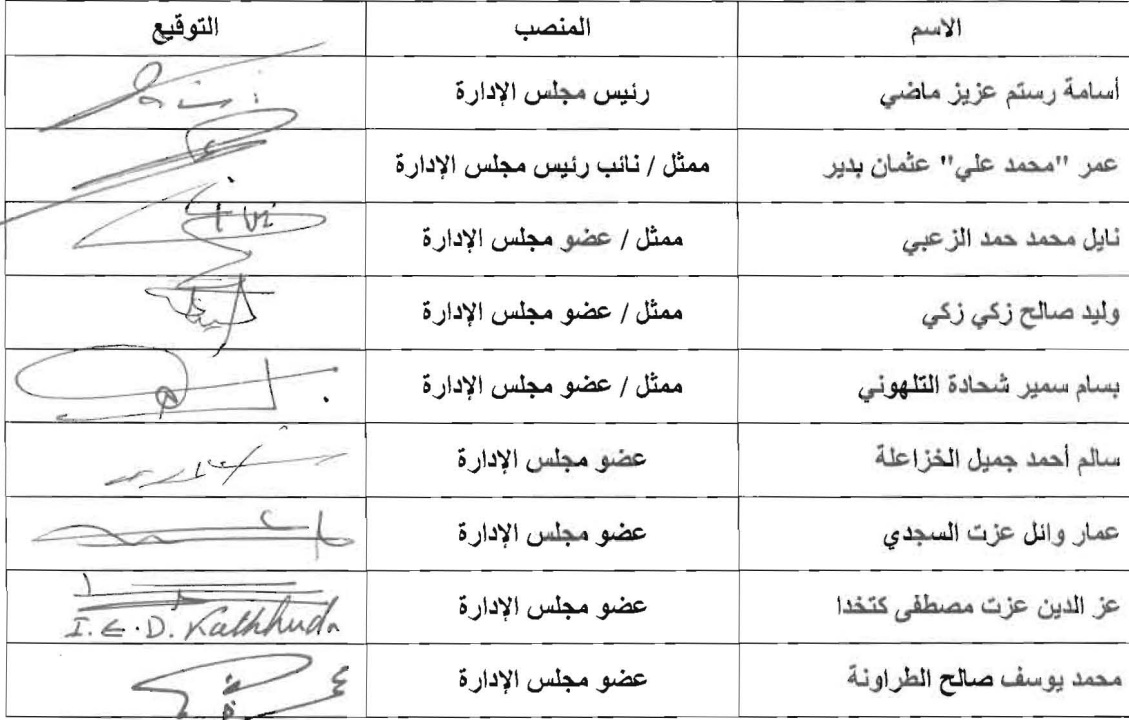 الاسم المنصب التوقيع
أسامة رستم عزيز ماضي رئيس مجلس الإدارة
عمر "محمد علي" عثمان بدير ممثل / نائب رئيس مجلس الإدارة
نايل محمد حمد الزعبي ممثل / عضو مجلس الإدارة
وليد صالح زكي زكي ممثل / عضو مجلس الإدارة
بسام سمير شحادة التلهوني ممثل / عضو مجلس الإدارة
سالم أحمد جميل الخزاعلة عضو مجلس الإدارة
عمار وائل عزت السجدي عضو مجلس الإدارة
عز الدين عزت مصطفى كتخدا عضو مجلس الإدارة I.E.D. Kathhuda
محمد يوسف صالح الطراونة عضو مجلس الإدارة